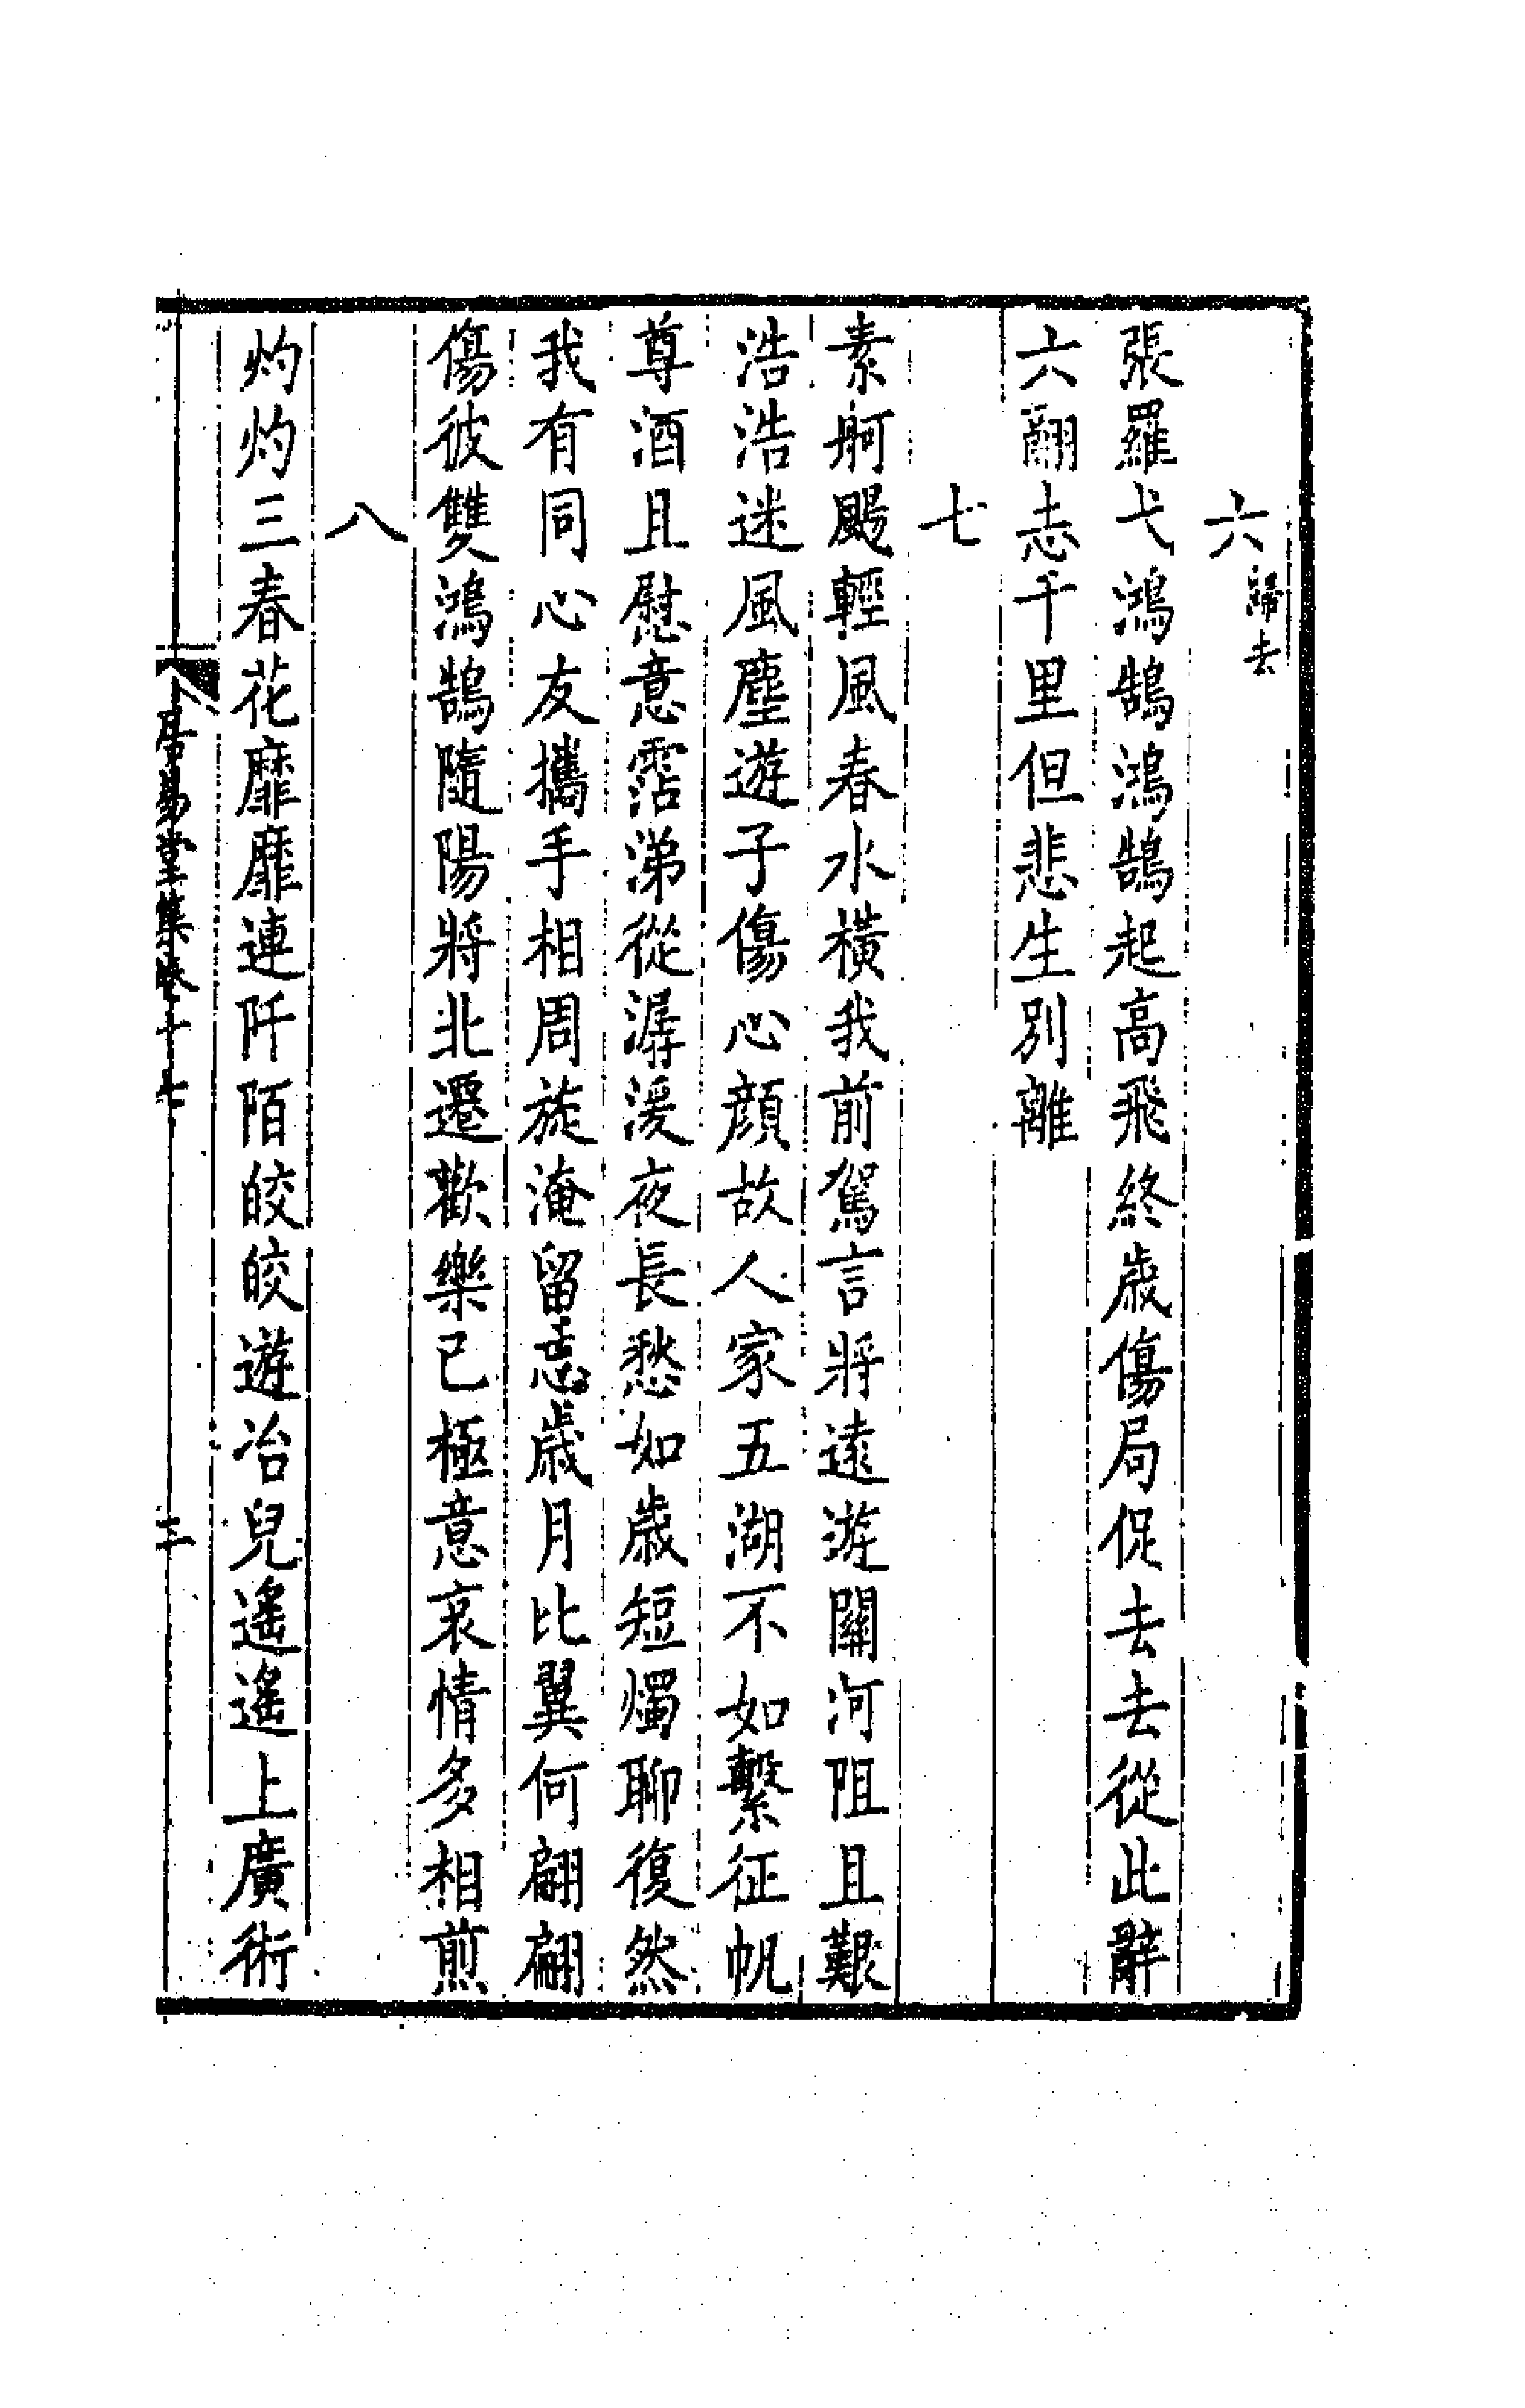 六歸去
張羅弋鴻鵠鴻鵠起高飛終歲傷局促去去從此辭
六翮志千里但悲生別離
七
素舸颺輕風春水橫我前駕言將遠遊關河阻且艱
浩浩迷風塵遊子傷心顏故人家五湖不如繫征帆
尊酒且慰意霑涕從潺湲夜長愁如歲短燭聊復然
我有同心友攜手相周旋淹留忘歲月比翼何翩翩
傷彼雙鴻鵠隨陽將北遷歡樂已極意哀情多相煎
八
灼灼三春花靡靡連阡陌皎皎遊冶兒遙遙上廣術
居易堂集卷十七 三